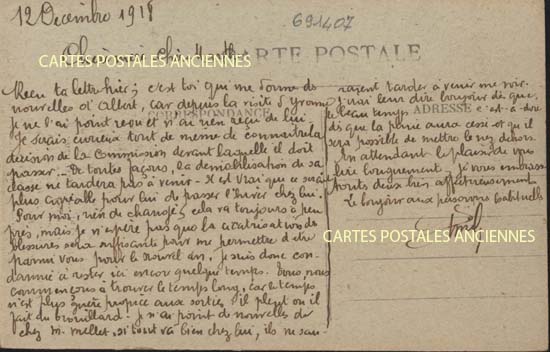 12 Décembre 1918
691407
CARTES POSTALES ANCIENNES
CARTE POSTALE
CORRESPONDANCE
ADRESSE
Reçu ta lettre hier; c'est toi qui me donne des
nouvelles d'Albert, car depuis la visite d'Yvonne
je ne l'ai point reçu et n'ai rien reçu de lui.
Je serais curieux tout de même de connaître la
décision de la Commission devant laquelle il doit
passer. De toutes façons, la démobilisation de sa
classe ne tardera pas à venir. Il est vrai que ce serait
plus agréable pour lui de passer l'hiver chez lui.
Pour moi, rien de changé, cela va toujours à peu
près, mais je n'espère pas que la cicatrisation des
blessures sera suffisante pour me permettre d'être
parmi vous pour le nouvel an, je suis donc con-
damné à rester ici encore quelque temps. Nous
commençons à trouver le temps long, car le temps
n'est plus guère propice aux sorties, il pleut ou il
fait du brouillard. Je n'ai point de nouvelles de
chez M. Mellet, si tout va bien chez lui, ils ne sau-
raient tarder à venir me voir.
J'irai leur dire bonjour dès que
le beau temps c'est-à-dire
dès que la pluie aura cessé et qu'il
sera possible de mettre le nez dehors.
En attendant le plaisir de vous
lire longuement, je vous embrasse
touts deux bien affectueusement.
Le bonjour aux personnes habituelles
CARTES POSTALES ANCIENNES